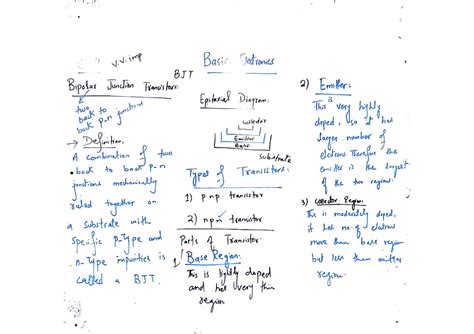 V.V. imp
Basic Electronics
Bipolar Junction Transistors:
BJT
two
back to
back p-n junctions
→ Definition:
A combination of two
back to back p-n
junctions mechanically
ruled together on
a substrate with
specific p-Type and
n-Type impurities is
called a BJT.
Epitarial Diagram:
Collector
Emitter
Base
Substrate
Types of Transistors:
1) pnp transistor
2) npn transistor
Parts of Transistor:
1) Base Region:
This is lightly doped
and has very thin
region
2) Emitter:
This is very highly
doped, so it has
larger number of
electrons therefore the
emitter is the largest
of the two regions.
3) Collector Region:
This is moderately doped,
it has no. of electrons
more than base region
but less than emitter
region.